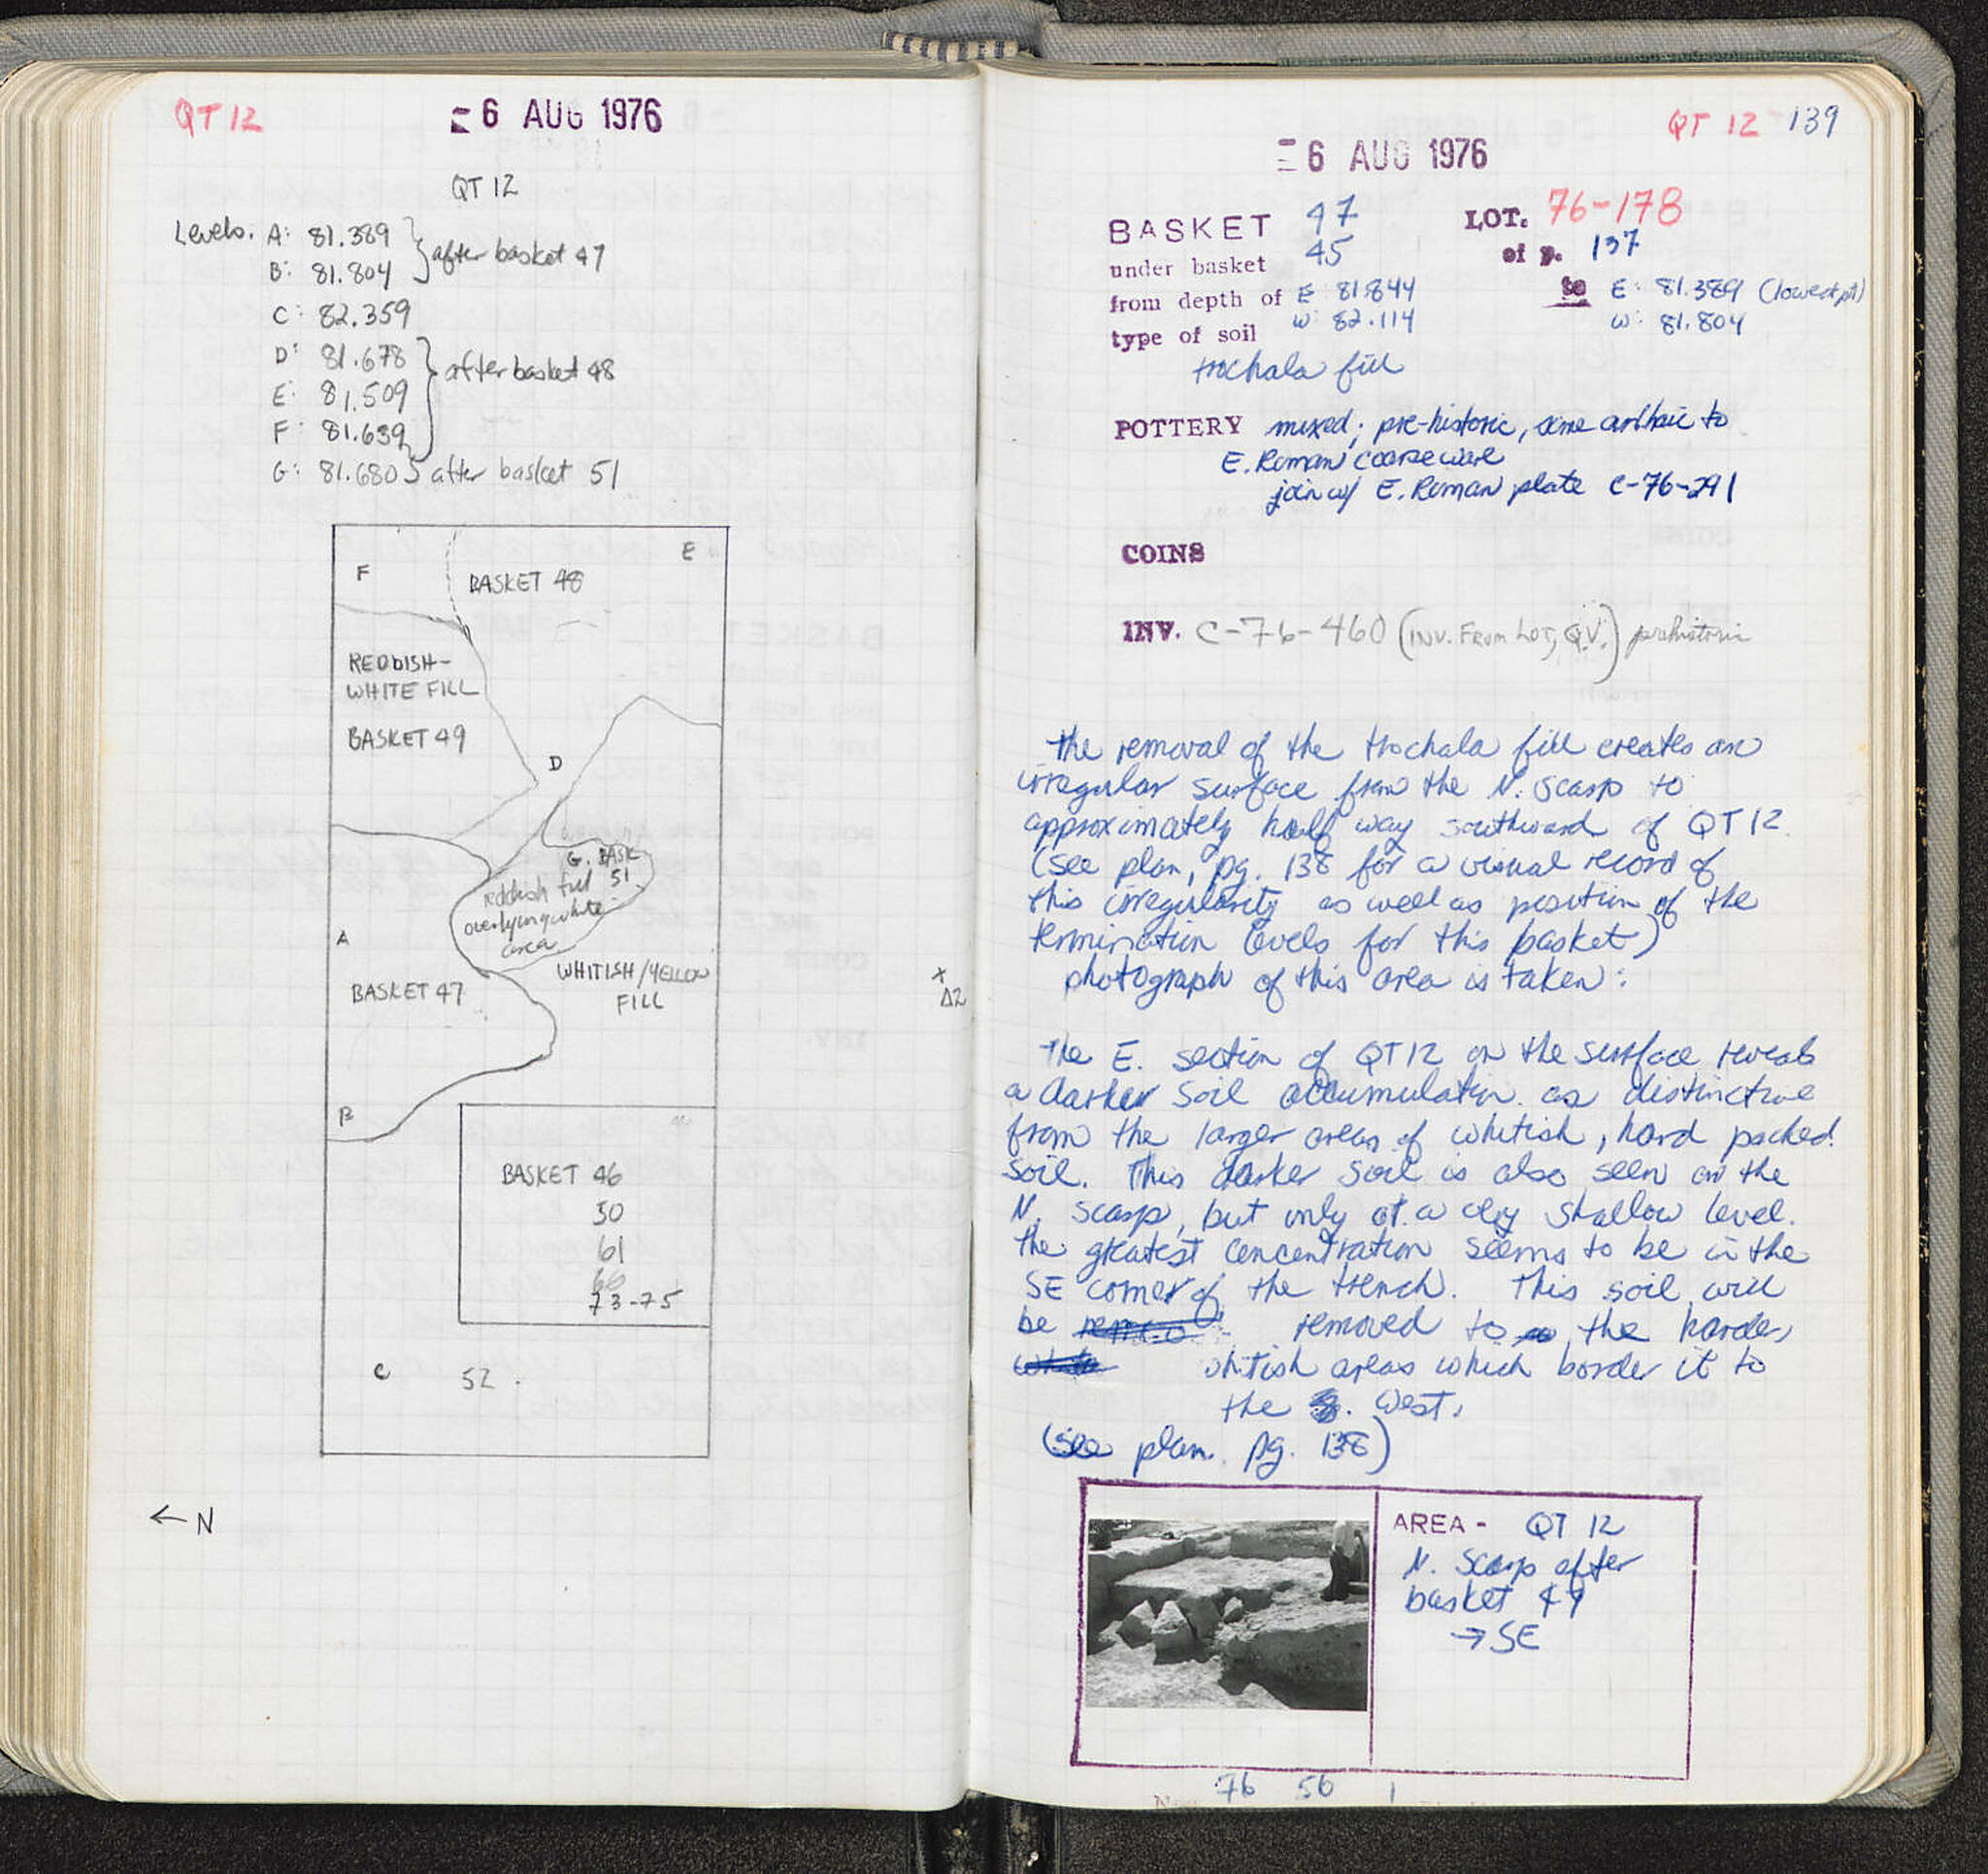 QT 12
6 AUG 1976
QT 12
Levels. A: 81.389
B: 81.804
after basket 47
C: 82.359
D: 81.678
E: 81.509
F: 81.639
after basket 48
G: 81.680 after basket 51
F
BASKET 48
E
REDDISH-
WHITE FILL
BASKET 49
D
G. BASK
51
reddish fill
overlying white
area
A
BASKET 47
WHITISH/YELLOW
FILL
B
BASKET 46
50
61
66
73-75
C
52
← N
x
Δ2
QT 12 139
6 AUG 1976
BASKET 47 LOT. 76-178
under basket 45 of p. 137
from depth of E: 81.844 to E: 81.389 (lowest pt)
W: 82.114 W: 81.804
type of soil
trochala fill
POTTERY mixed; pre-historic, some archaic to
E. Roman coarse ware
join w/ E. Roman plate C-76-291
COINS
INV. C-76-460 (INV. FROM LOT, Q.V.) prehistoric
The removal of the trochala fill creates an
irregular surface from the N. scarp to
approximately half way southward of QT 12.
(see plan, pg. 138 for a visual record of
this irregularity as well as position of the
termination levels for this basket)
photograph of this area is taken:
The E. section of QT 12 on the surface reveals
a darker soil accumulation as distinctive
from the larger areas of whitish, hard packed
soil. This darker soil is also seen on the
N. scarp, but only at a very shallow level.
The greatest concentration seems to be in the
SE corner of the trench. This soil will
be removed to the harder,
whitish areas which border it to
the West.
(see plan. pg. 138)
AREA - QT 12
N. Scarp after
basket 47
→ SE
76 56 1